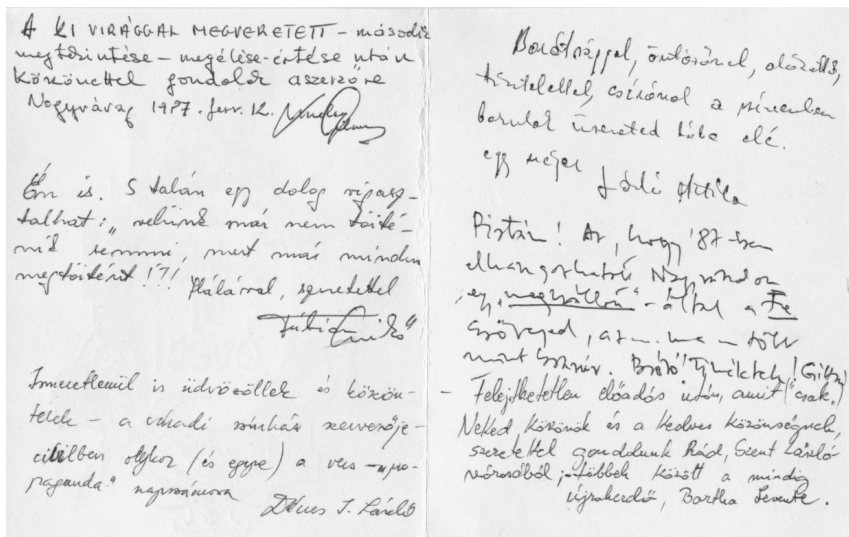 A KI VIRÁGGAL MEGVERETETT – második
megtekintése – megélése-értése után
köszönettel gondolok a szerzőre
Nagyvárad 1987. febr. 12.
Én is. S talán egy dolog vigasz-
talhat: „velünk már nem törté-
nik semmi, mert már minden
megtörtént!?! Hálával, szeretettel
Fábián Enikő
Ismeretlenül is üdvözöllek és köszön-
telek – a váradi színház szervezője
civilben olykor (és egyre) a vers-„pro-
paganda" napszámosa
Dénes I. László
Barátsággal,
tisztelettel, a szívemben
borulok elé.
egy
Attila
Pistám! Az, hogy '87-ben
elhangozhatott Nagyváradon
egy „megszállott" – által a Te
szöveged, az – ma – több
mint bravúr. Gitta
– Felejthetetlen előadás után, amit ("csak")
Neked köszönök és a kedves közönségnek,
szeretettel gondolunk Rád, Szent László
városából, többek között a mindig
újrakezdő, Bartha Levente.